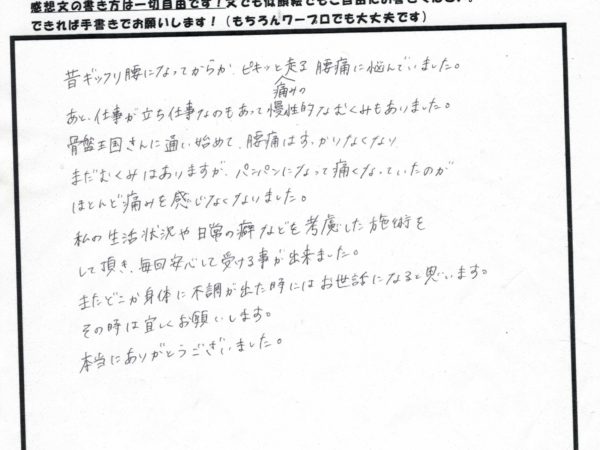 感想文の書き方は一切自由です！文でも似顔絵でもご自由にお書きください。
できれば手書きでお願いします！（もちろんワープロでも大丈夫です）
昔ギックリ腰になってからか、ピキッと走る痛みの腰痛に悩んでいました。
あと、仕事が立ち仕事なのもあって慢性的なむくみもありました。
骨盤王国さんに通い始めて、腰痛はすっかりなくなり
まだむくみはありますが、パンパンになって痛くなっていたのが
ほとんど痛みを感じなくなりました。
私の生活状況や日常の癖などを考慮した施術を
して頂き、毎回安心して受ける事が出来ました。
またどこか身体に不調が出た時にはお世話になると思います。
その時は宜しくお願いします。
本当にありがとうございました。